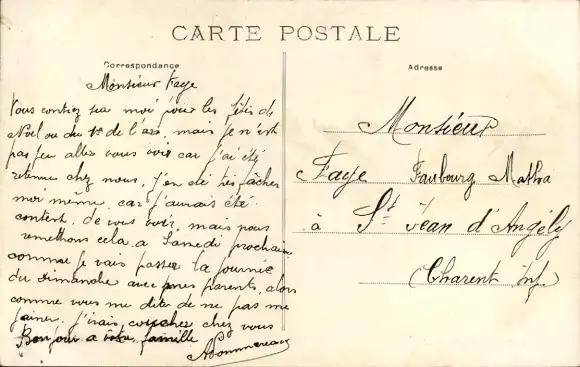 CARTE POSTALE
Correspondance
Monsieur Faye
Vous contiez sur moi pour les fêtes de
Noël ou du 1er de l'an, mais je n'est
pas peu aller vous voir car j'ai été
retenu chez nous. J'en été très fâcher
moi même, car j'aurais été
content de vous voir, mais nous
remettrons cela a Samedi prochain
comme je vais passer la journée
du Dimanche avec mes parents, alors
comme vous me dite de ne pas me
gainer. J'irais coucher chez vous
Bonjour a votre famille
Adresse
Monsieur
Faye Faubourg Matha
à St Jean d'Angély
Charent Inf